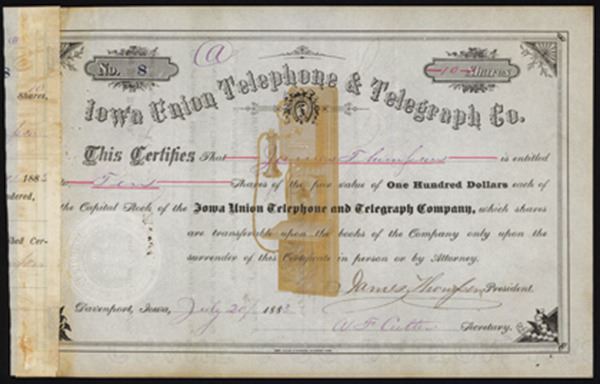 A
No. 8
10 Shares
Iowa Union Telephone & Telegraph Co.
This Certifies That James Thompson is entitled
to Ten Shares of the par value of One Hundred Dollars each of
the Capital Stock of the Iowa Union Telephone and Telegraph Company, which shares
are transferable upon the books of the Company only upon
the surrender of this Certificate in person or by Attorney.
James Thompson President.
Davenport, Iowa, July 20 1883
W F Cutter Secretary.
8
Shares,
1883
dered,
lled Cer-